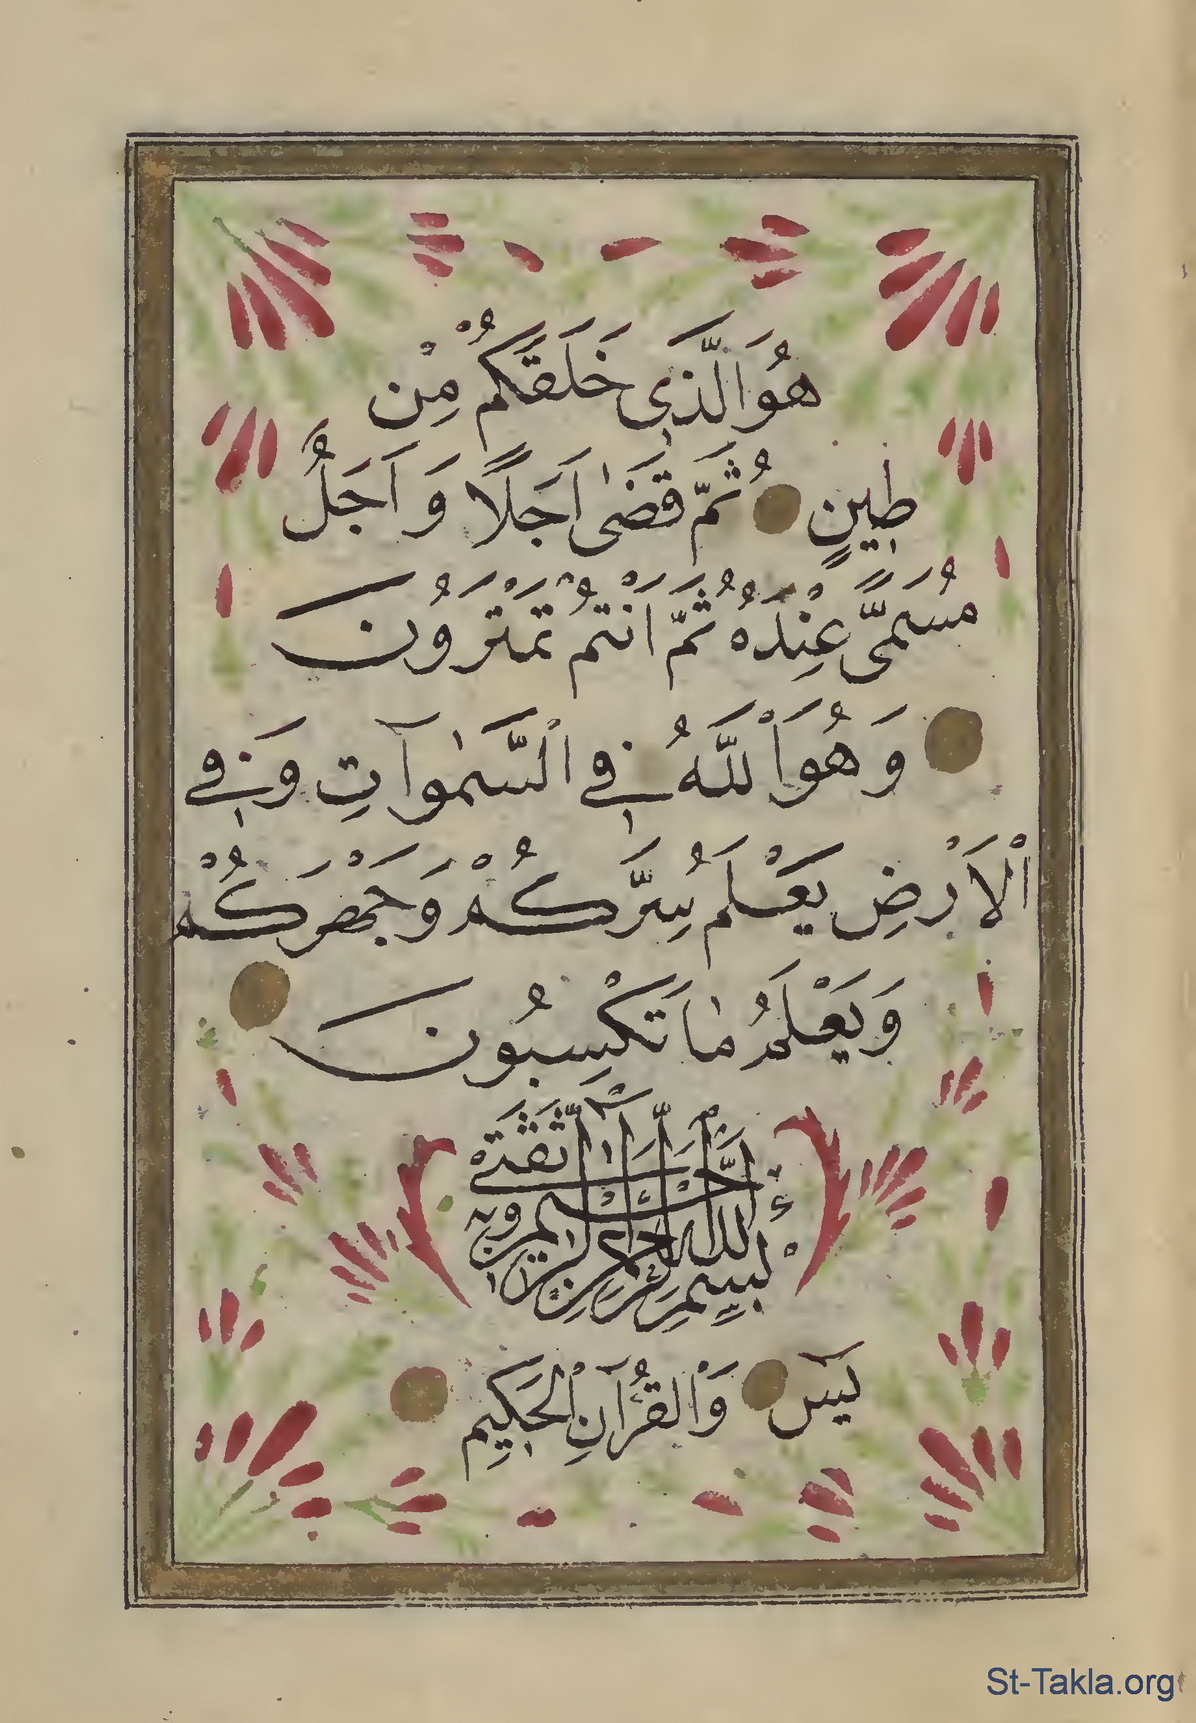 هُوَ الَّذِى خَلَقَكُمْ مِنْ
طِينٍ ثُمَّ قَضٰى اَجَلًا وَ اَجَلٌ
مُسَمًّى عِنْدَهُ ثُمَّ اَنْتُمْ تَمْتَرُونَ
وَ هُوَ اْللَّهُ فِى اْلسَّمٰوَآتِ وَ فِى
اْلاَرْضِ يَعْلَمُ سِرَّكُمْ وَ جَهْرَكُمْ
وَ يَعْلَمُ مٰا تَكْسِبُونَ
بِسْمِ اللَّهِ الرَّحْمٰنِ الرَّحِيمِ وَبِهِ ثِقَتِى
يٓس وَاْلقُرْآنِ اْلحَكِيمِ
St-Takla.org